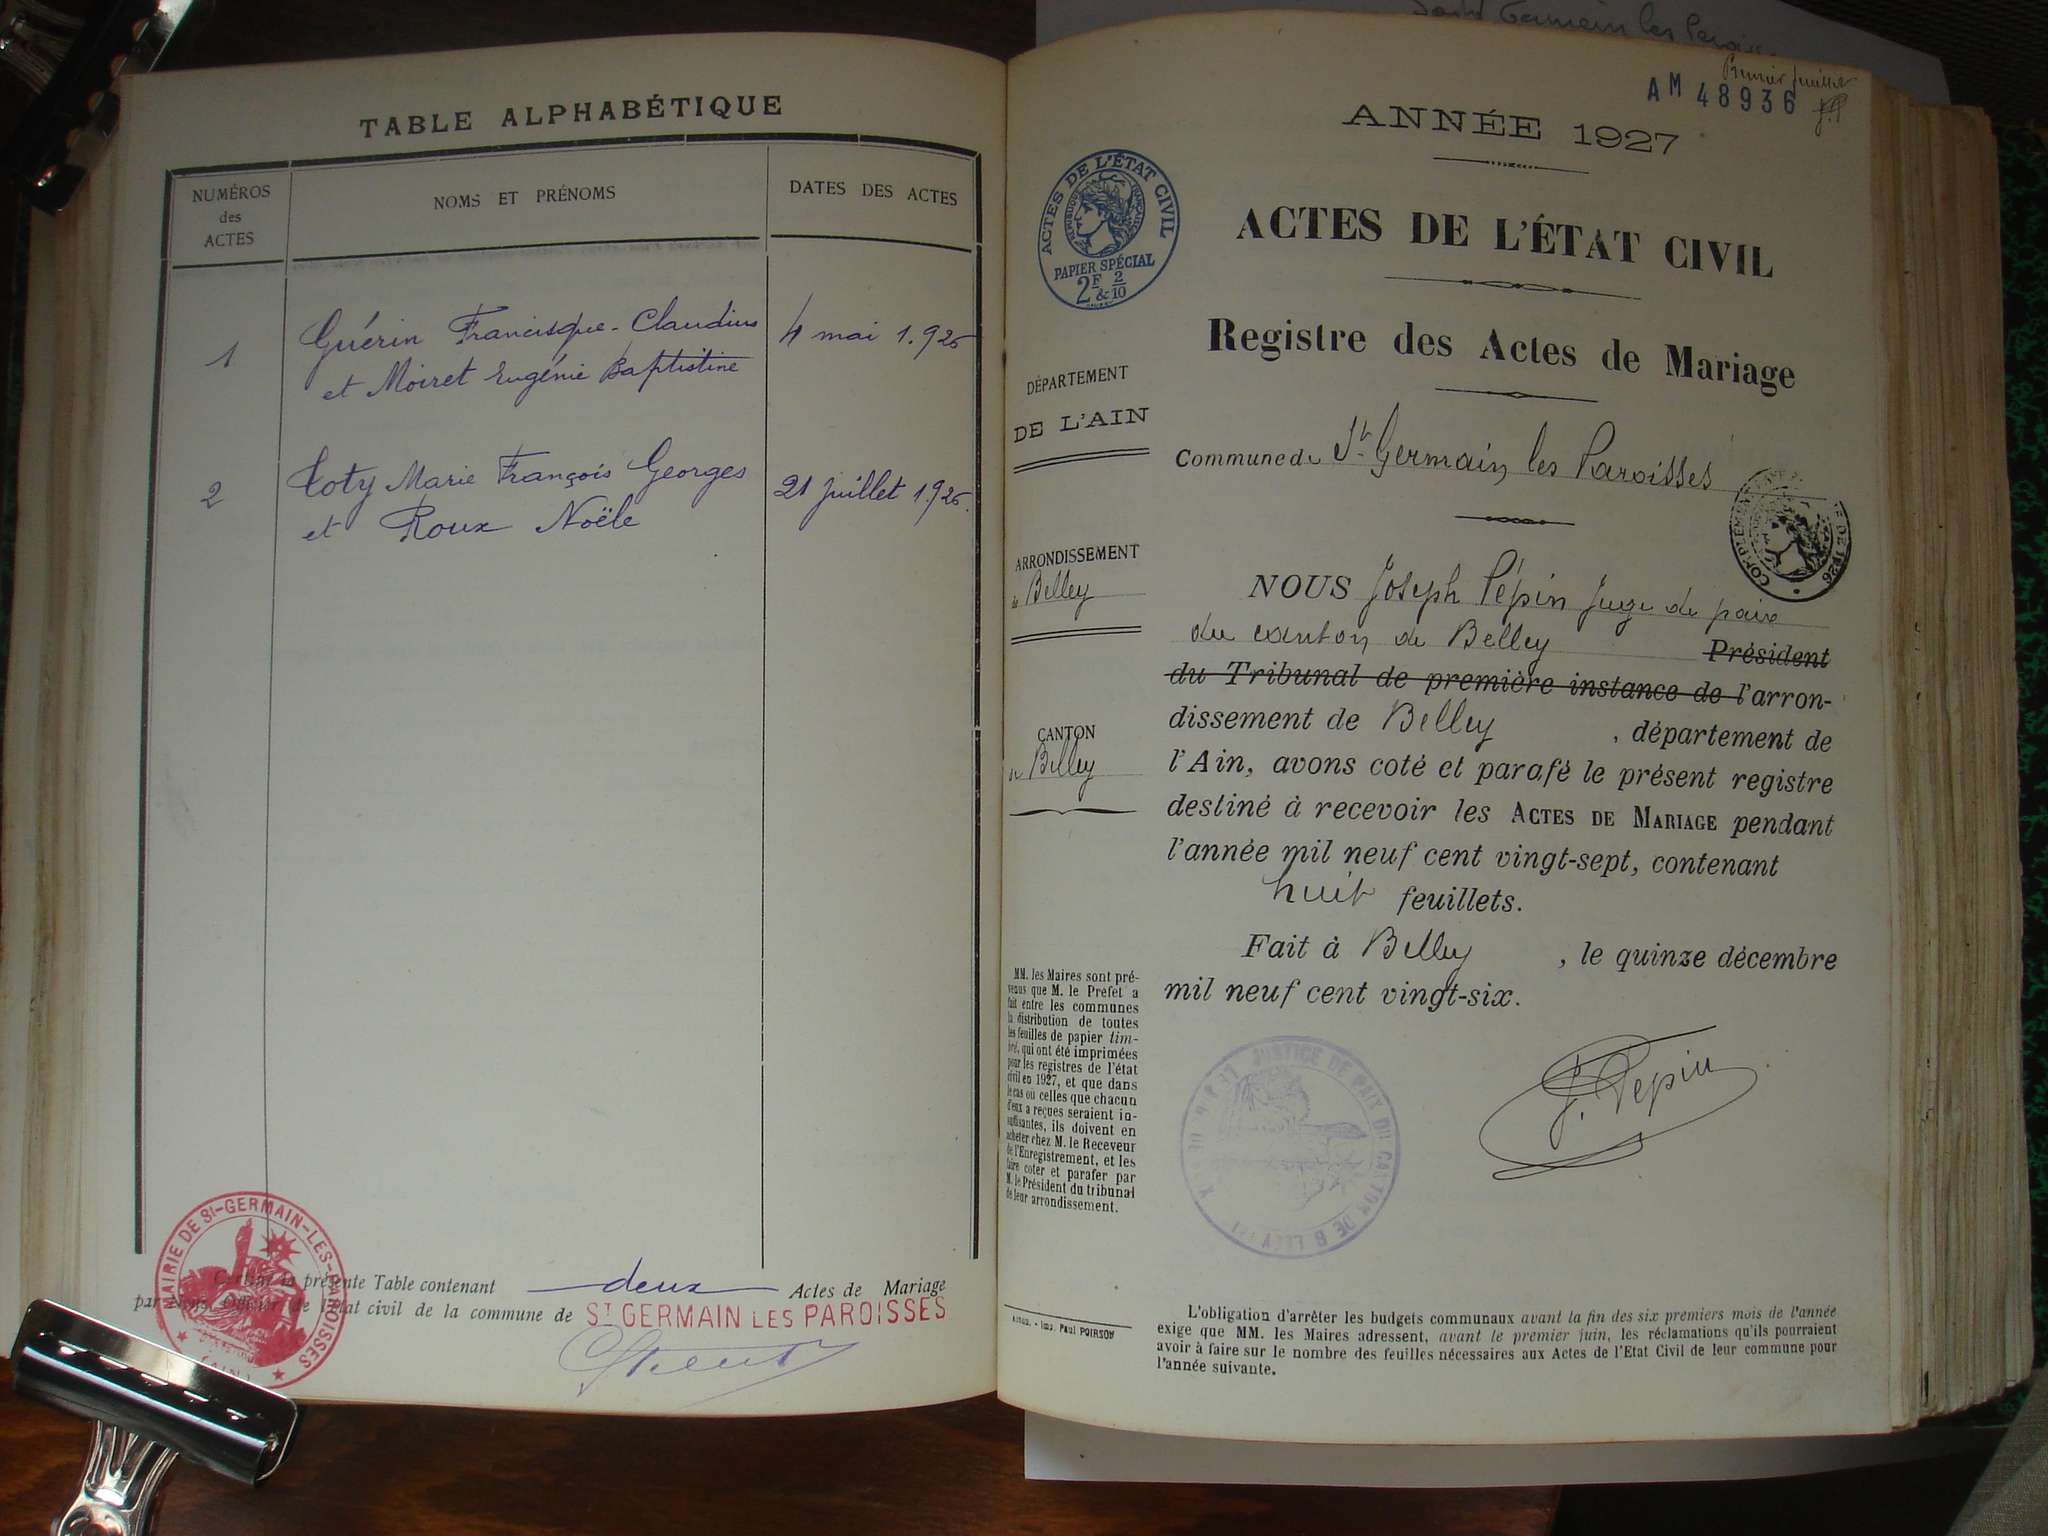 Saint Germain les Paroisses
TABLE ALPHABÉTIQUE
NUMÉROS
des
ACTES
NOMS ET PRÉNOMS
DATES DES ACTES
1
Guérin Francisque-Claudius
et Moiret Eugénie Baptistine
4 mai 1.926
2
Toty Marie François Georges
et Roux Noële
21 juillet 1.926.
Certifié la présente Table contenant deux Actes de Mariage
par Nous, Officier de l'état civil de la commune de ST GERMAIN LES PAROISSES
MAIRIE DE ST-GERMAIN-LES-PAROISSES
(AIN)
Premier feuillet
AM 48936
J.P
ANNÉE 1927
ACTES DE L'ÉTAT CIVIL
RÉPUBLIQUE FRANÇAISE
PAPIER SPÉCIAL
2F & 2/10
ACTES DE L'ÉTAT CIVIL
Registre des Actes de Mariage
DÉPARTEMENT
DE L'AIN
Commune de St Germain les Paroisses
DE 1926
ARRONDISSEMENT
de Belley
CANTON
de Belley
NOUS Joseph Pépin Juge de paix
du canton de Belley Président
du Tribunal de première instance de l'arron-
dissement de Belley , département de
l'Ain, avons coté et parafé le présent registre
destiné à recevoir les ACTES DE MARIAGE pendant
l'année mil neuf cent vingt-sept, contenant
huit feuillets.
Fait à Belley , le quinze décembre
mil neuf cent vingt-six.
J. Pépin
JUSTICE DE PAIX DU CANTON DE BELLEY
MM. les Maires sont pré-
venus que M. le Préfet a
fait entre les communes
la distribution de toutes
les feuilles de papier tim-
bré, qui ont été imprimées
pour les registres de l'état
civil en 1927, et que dans
le cas où celles que chacun
d'eux a reçues seraient in-
suffisantes, ils doivent en
acheter chez M. le Receveur
de l'Enregistrement, et les
faire coter et parafer par
M. le Président du tribunal
de leur arrondissement.
Imp. Paul POIRSON
L'obligation d'arrêter les budgets communaux avant la fin des six premiers mois de l'année
exige que MM. les Maires adressent, avant le premier juin, les réclamations qu'ils pourraient
avoir à faire sur le nombre des feuilles nécessaires aux Actes de l'Etat Civil de leur commune pour
l'année suivante.